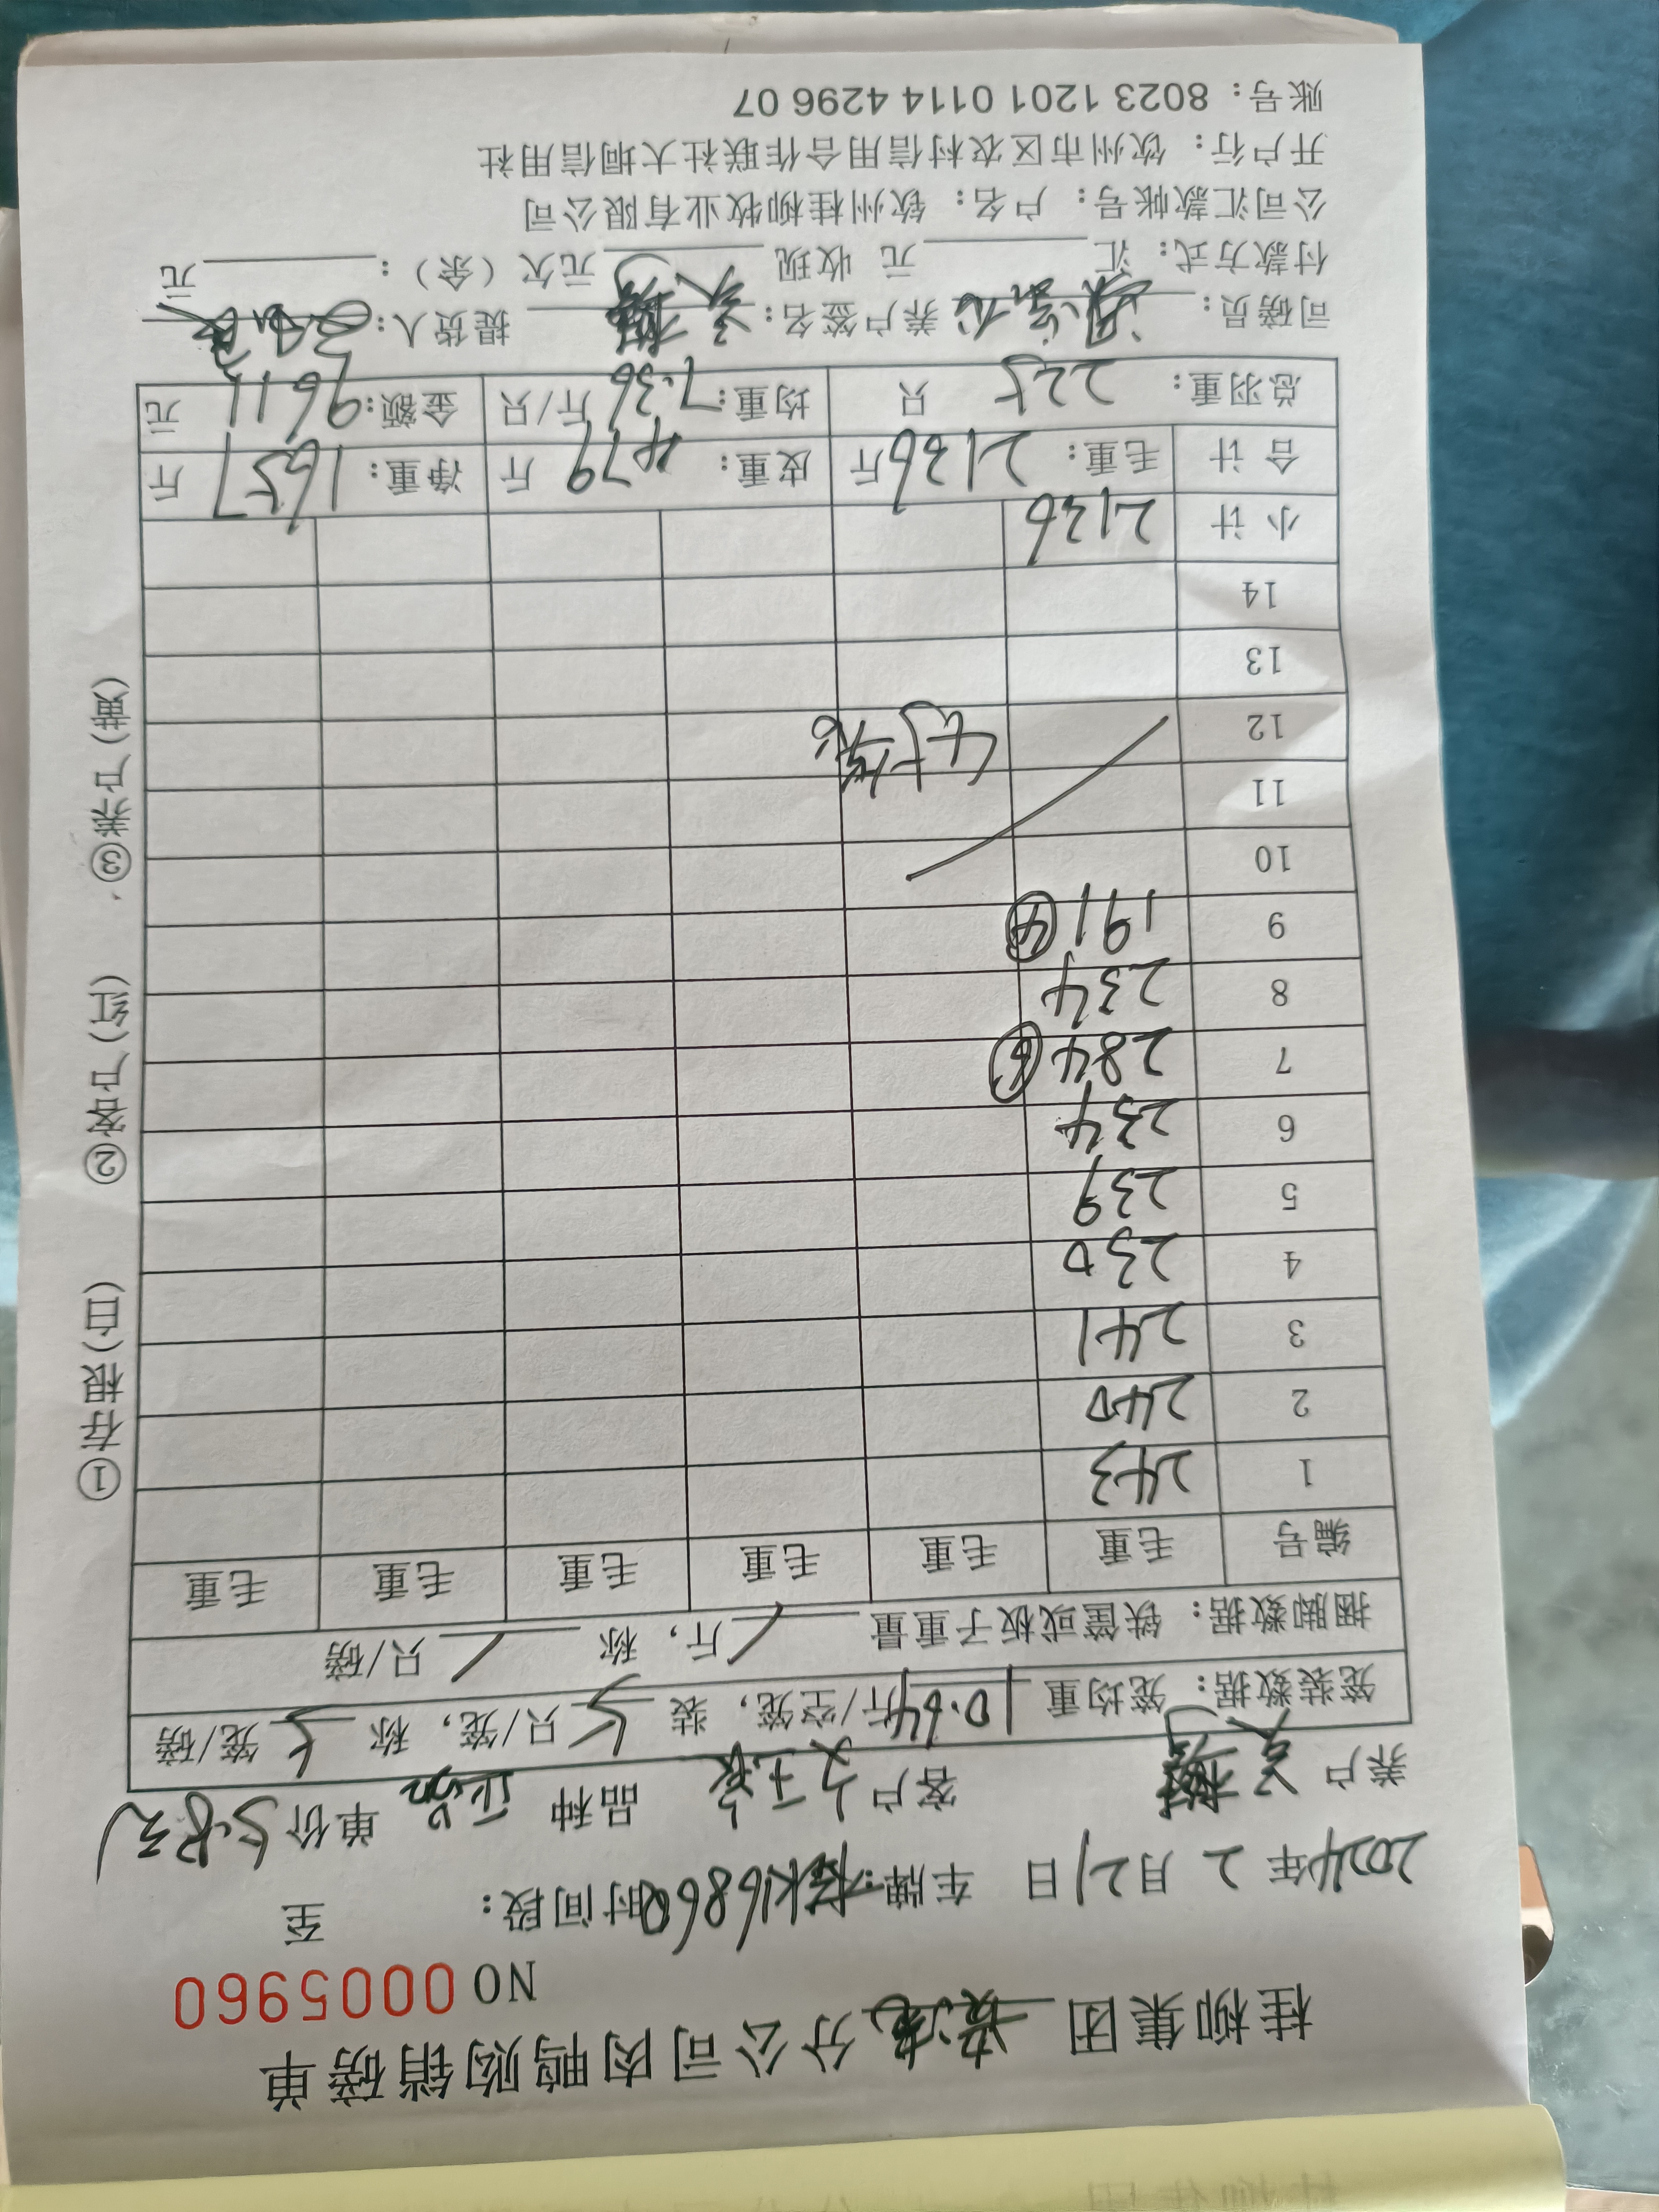 桂柳集团 分公司肉鸭购销磅单
NO 0005960
2024年 2 月 21 日 车牌: K16868 时间段: 至
养户 客户 品种 正品 单价 5.8元
笼装数据: 笼均重 10.64 斤/空笼, 装 5 只/笼, 称 5 笼/磅
捆脚数据: 铁筐或板子重量 / 斤, 称 / 只/磅
编号 毛重 毛重 毛重 毛重 毛重 毛重
1 243
2 240
3 241
4 230
5 239
6 234
7 284 ⑥
8 234
9 191 ④
10
11
12
13
14
小计 2136
合计 毛重: 2136 斤 皮重: 479 斤 净重: 1657 斤
总羽重: 225 只 均重: 7.36 斤/只 金额: 9611 元
司磅员: 养户签名: 提货人:
付款方式: 汇 元 收现 元欠(余): 元
公司汇款帐号: 户名: 钦州桂柳牧业有限公司
开户行: 钦州市区农村信用合作联社大垌信用社
账号: 8023 1201 0114 4296 07
①存根(白) ②客户(红) ③养户(黄)